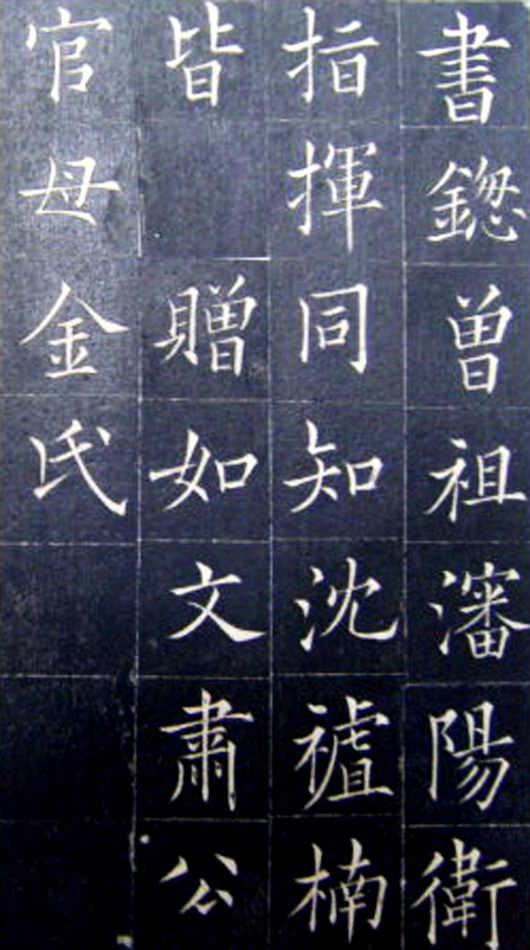 書鍯曾祖瀋陽衛
指揮同知沈楠
皆 贈如文肅公
官母金氏